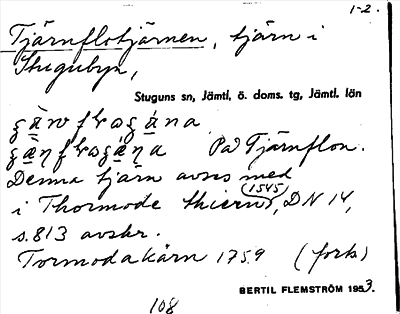 1-2.
Tjärnflotjärnen, tjärn i
Stugubyn,
Stuguns sn, Jämtl, ö. doms. tg, Jämtl. län
På Tjärnflon.
Denna tjärn avses med
i Thormode thiern (1545), DN 14,
s. 813 avskr.
Tormodakärn 1759 (forts)
BERTIL FLEMSTRÖM 1953.
108